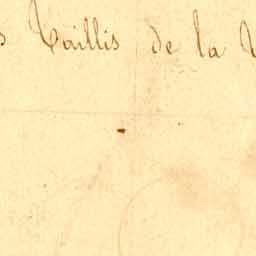 s Taillis de la